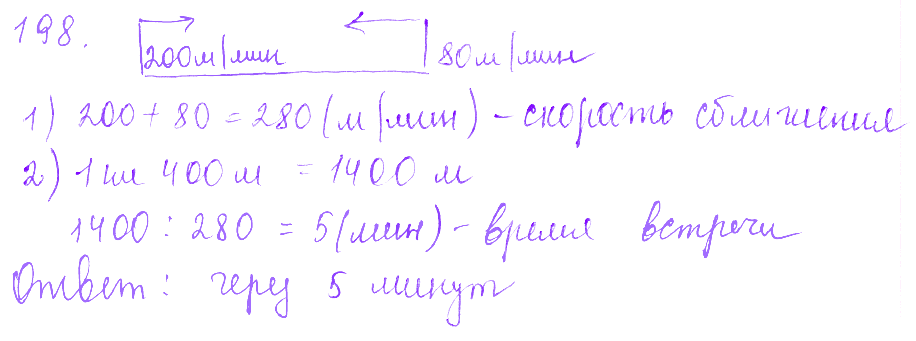 198.
200м/мин 80м/мин
1) 200 + 80 = 280 (м/мин) - скорость сближения
2) 1 км 400 м = 1400 м
1400 : 280 = 5 (мин) - время встречи
Ответ: через 5 минут